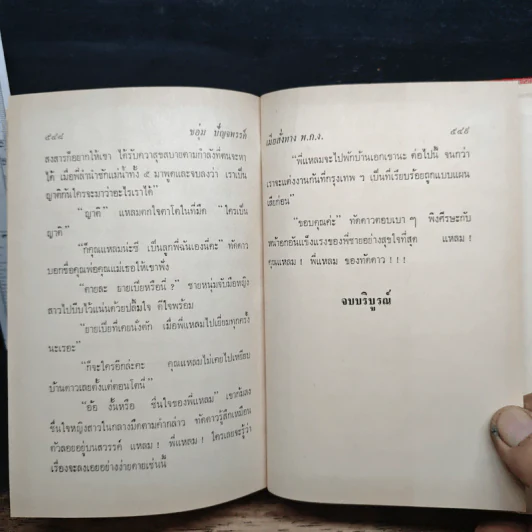 ๕๔๘ ชอุ่ม ปัญจพรรค์
สงสารก็อยากให้เขา ได้รับความสุขสบายตามกำลังที่ตนจะหา
ได้ เมื่อพี่ล่ำนำซักแม่น้ำทั้ง ๕ มาพูดและจบลงว่า เราเป็น
ญาติกันใครจะมาว่าอะไรเราได้”
“ญาติ” แหลมตกใจตาโตในที่มืด “ใครเป็น
ญาติ”
“ก็คุณแหลมน่ะซี เป็นลูกพี่ฉันเองนี่คะ” ทัดดาว
บอกชื่อคุณพ่อคุณแม่เธอให้เขาฟัง
“ตายละ ยายเบี้ยหรือนี่ ?” ชายหนุ่มจับมือหญิง
สาวไปบีบไว้แน่นด้วยปลื้มใจ ดีใจพร้อม
“ยายเบี้ยที่เคยนั่งตัก เมื่อพี่แหลมไปเยี่ยมทุกครั้ง
นะเรอะ”
“ก็จะใครอีกล่ะคะ คุณแหลมไม่เคยไปเหยียบ
บ้านดาวเลยตั้งแต่ตอนโตนี่”
“อ้อ งั้นหรือ ชื่นใจของพี่แหลม” เขาก้มลง
ชื่นใจหญิงสาวในกลางมืดตามคำกล่าว ทัดดาวรู้สึกเหมือน
ตัวลอยอยู่บนสวรรค์ แหลม ! พี่แหลม ! ใครเลยจะรู้ว่า
เรื่องจะลงเอยอย่างง่ายดายเช่นนี้
เมียสั่งทาง พ.ก.ง. ๕๔๙
“พี่แหลมจะไปพักบ้านเอกเขานะ ต่อไปนี้ จนกว่า
เราจะแต่งงานกันที่กรุงเทพ ฯ เป็นที่เรียบร้อยถูกแบบแผน
เสียก่อน”
“ขอบคุณค่ะ” ทัดดาวตอบเบา ๆ พิงศีรษะกับ
หน้าอกอันแข็งแรงของพี่ชายอย่างสุขใจที่สุด แหลม !
คุณแหลม ! พี่แหลม ของทัดดาว ! ! !
จบบริบูรณ์